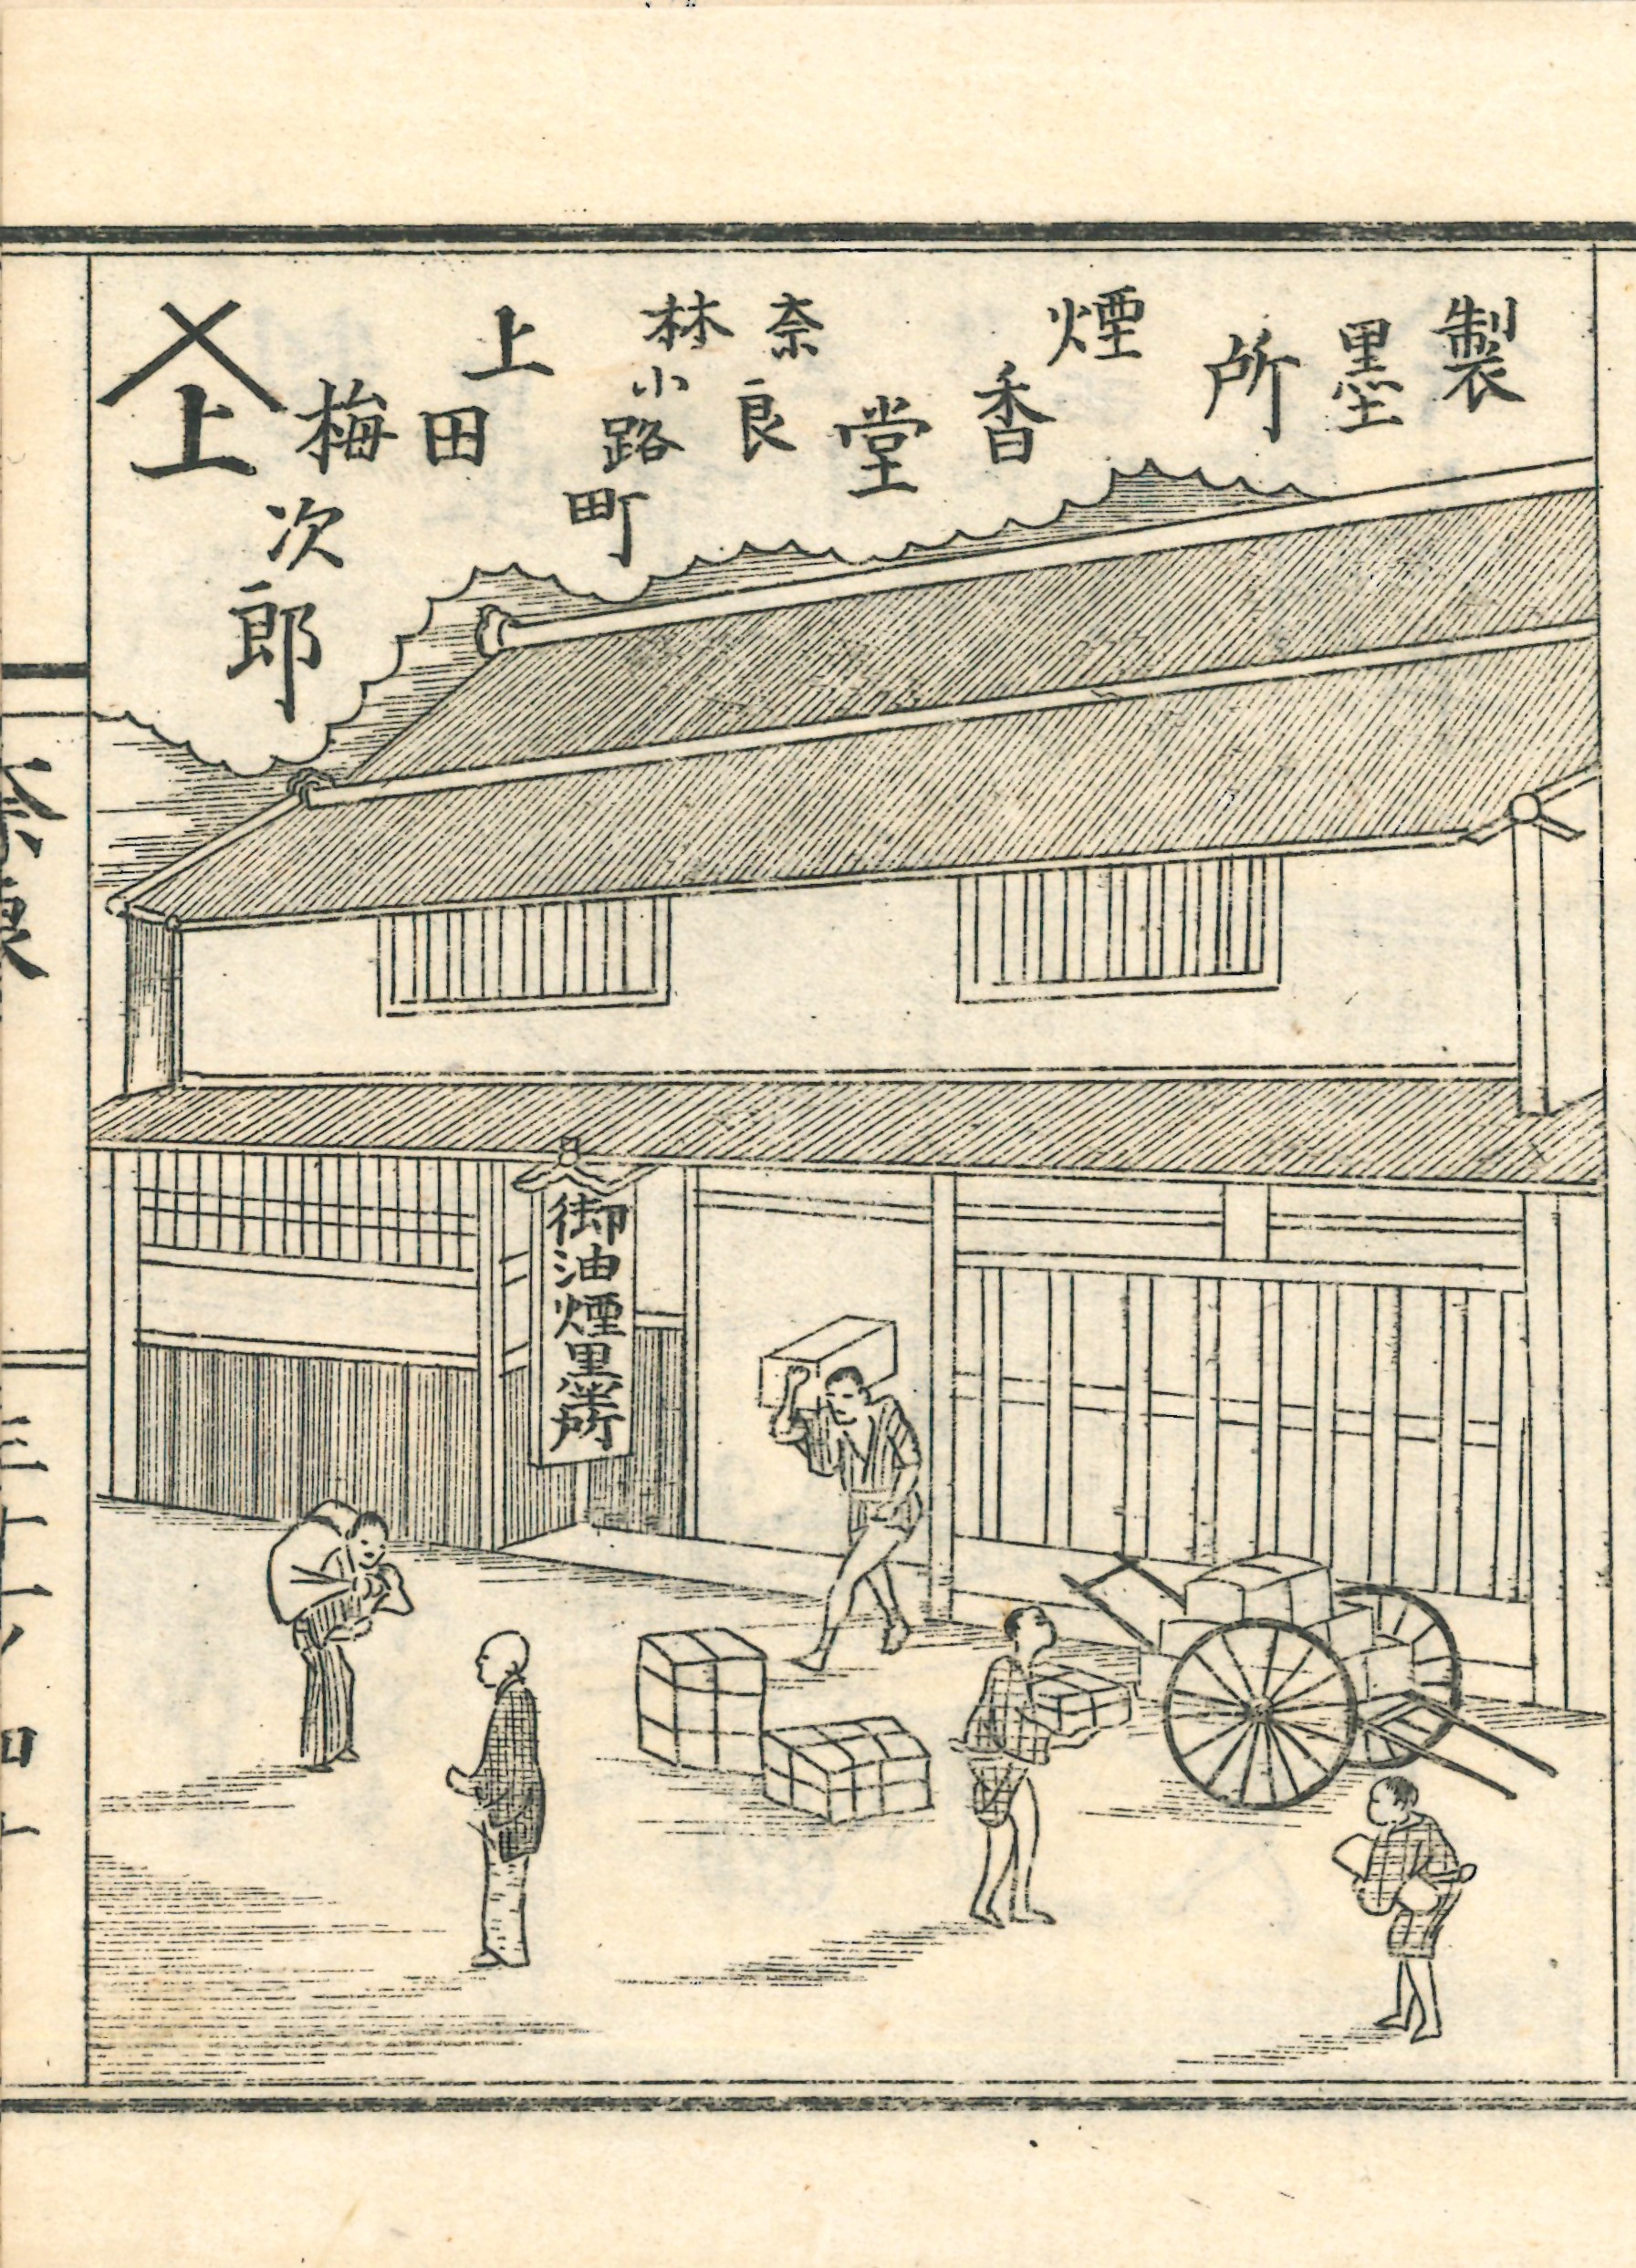 製墨所
煙香堂
奈良
林小路町
上田梅次郎
上
御油煙墨所
奈良
三十一ノ四十